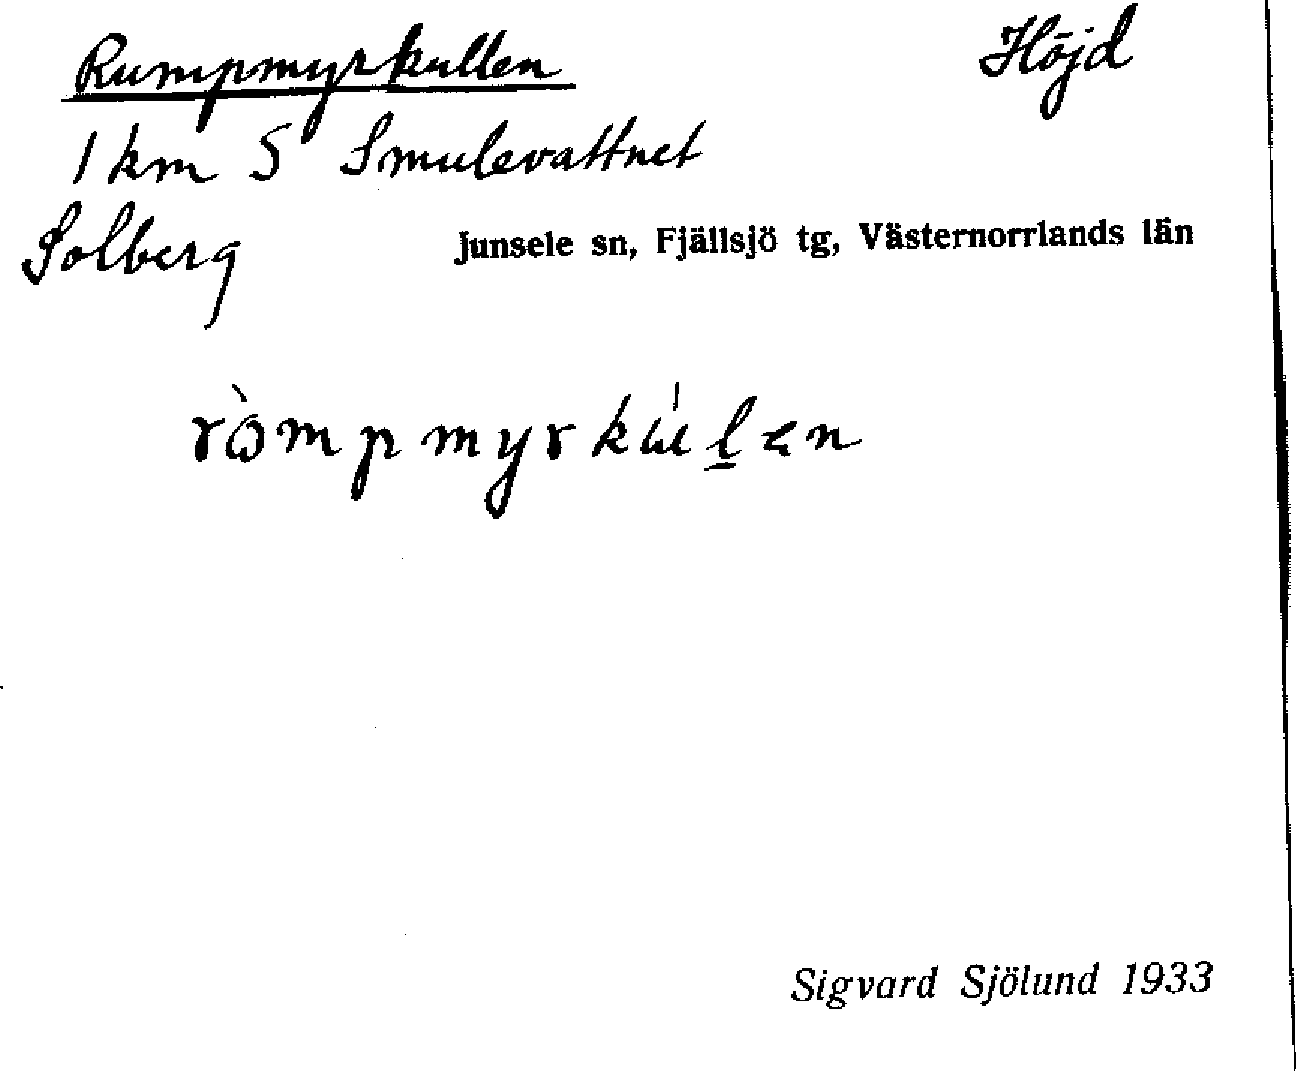 Rumpmyrkullen Höjd
1 km S Smulevattnet
Solberg Junsele sn, Fjällsjö tg, Västernorrlands län
Sigvard Sjölund 1933